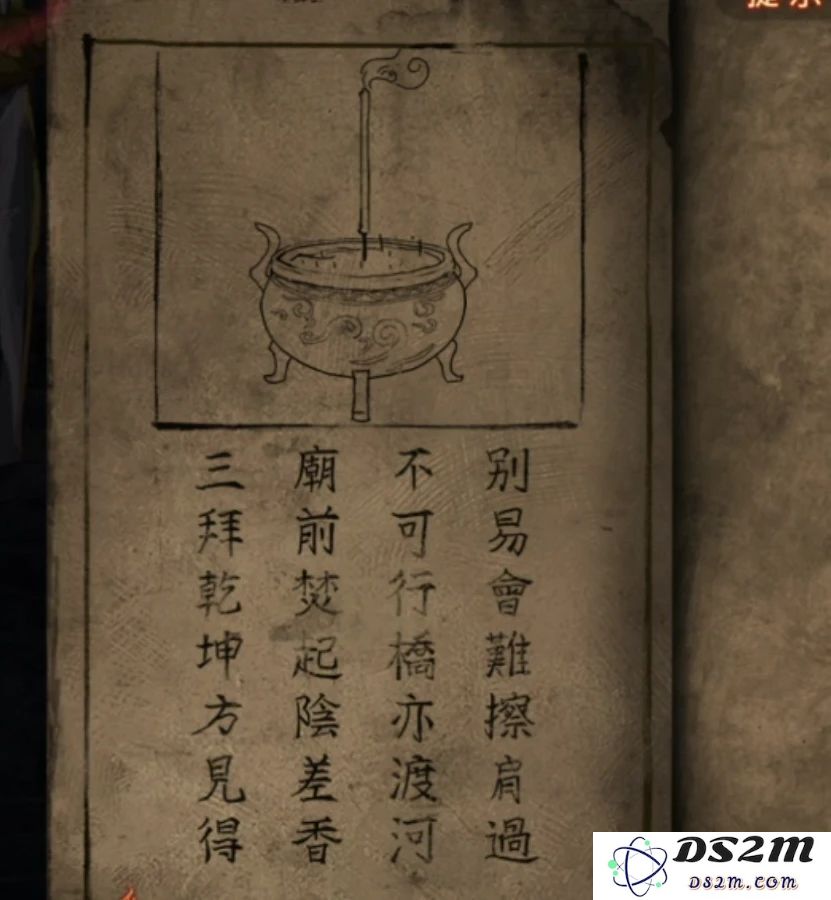 提示
别易會難擦肩過
不可行橋亦渡河
廟前焚起陰差香
三拜乾坤方見得
DS2M
DS2M.COM